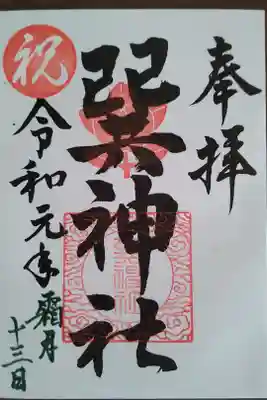 奉拝
巽神社
祝
令和元年霜月
十三日